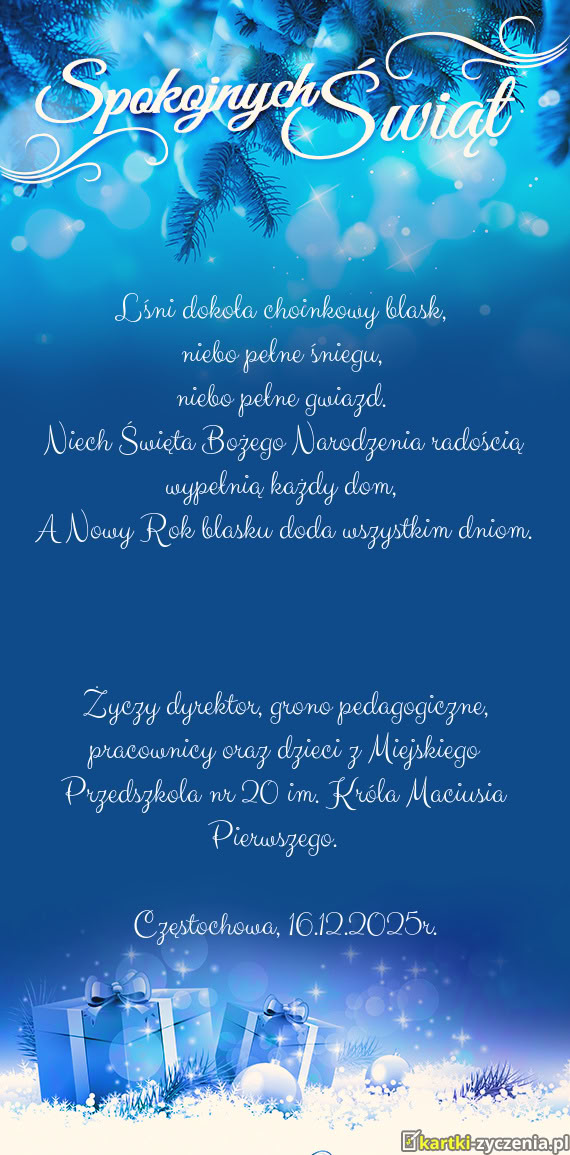 Spokojnych Świąt
Lśni dokoła choinkowy blask,
niebo pełne śniegu,
niebo pełne gwiazd.
Niech Święta Bożego Narodzenia radością
wypełnią każdy dom,
A Nowy Rok blasku doda wszystkim dniom.
Życzy dyrektor, grono pedagogiczne,
pracownicy oraz dzieci z Miejskiego
Przedszkola nr 20 im. Króla Maciusia
Pierwszego.
Częstochowa, 16.12.2025r.
kartki-zyczenia.pl